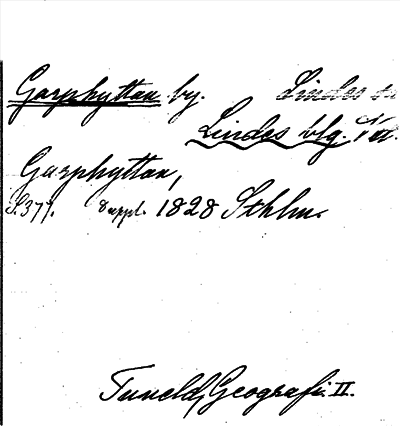 Garphyttan by. Lindes sn
Lindes blg.
Garphyttan,
S.371. 8 uppl. 1828 Sthlm.
Tuneld, Geografi. II.